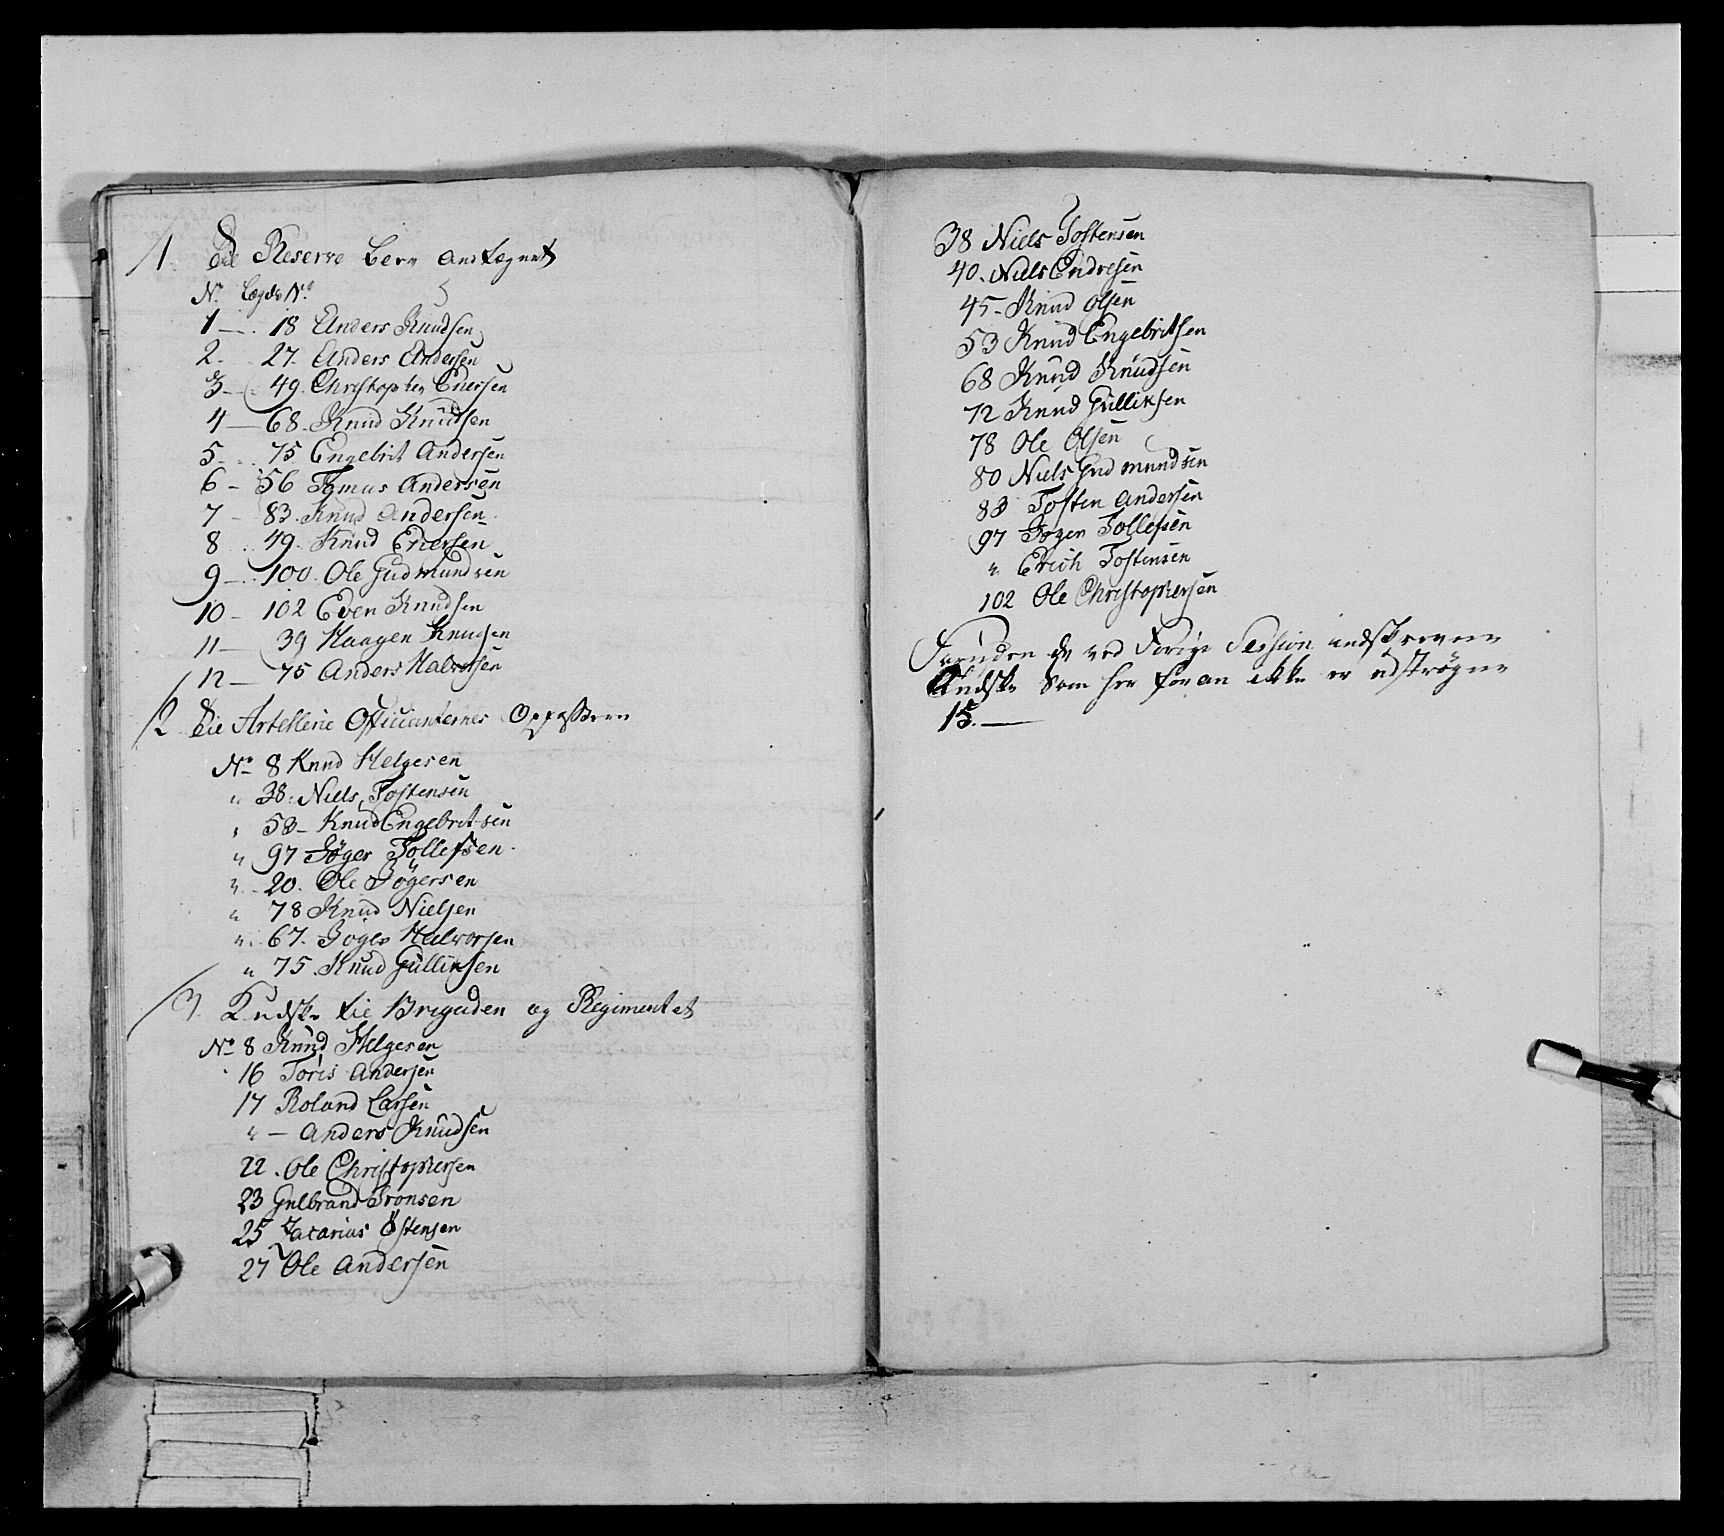 1. Til Reserve blev antegnet
No. Lægds No.
1 — 18 Anders Knudsen
2. 27. Anders Andersen
3 — 49. Christopher Eriersen
4 — 68. Knud Knudsen
5 - 75 Engebrit Andersen
6 - 56 Tomas Andersen
7 - 83. Knud Andersen
8 49. Knud Eriersen
9 — 100. Ole Gudmundsen
10 - 102 Even Knudsen
11 — 39 Haagen Knudsen
12 — 75 Anders Halvorsen
2 Til Artellerie Officianternes Oppassere
No. 8 Knud Helgesen
" 38. Niels Tostensen
" 53 - Knud Engebritsen
" 97 Jöger Tollefsen
" 20. Ole Jögersen
" 78 Knud Nielsen
" 67. Joger Halvorsen
" 75. Knud Gulliksen
3. Kudske til Brigaden og Regimentet
No. 8 Knud Helgesen
16 Joris Andersen
17 Roland Larsen
" — Anders Knudsen
22. Ole Christophersen
23 Gulbrand Tronsen
25 Zacarias Östensen
27 Ole Andersen
38 Niels Tostensen
40. Niels Endresen
45 - Knud Olsen
53 Knud Engebritsen
68 Knud Knudsen
72 Knud Gulliksen
78 Ole Olsen
80 Niels Gudmundsen
83 Tosten Andersen
97 Joger Tollefsen
" Erich Tostensen
102 Ole Christophersen
Foruden de ved Forige Session indskrevne
Kudske Som her foran ikke er udströgne
15. —